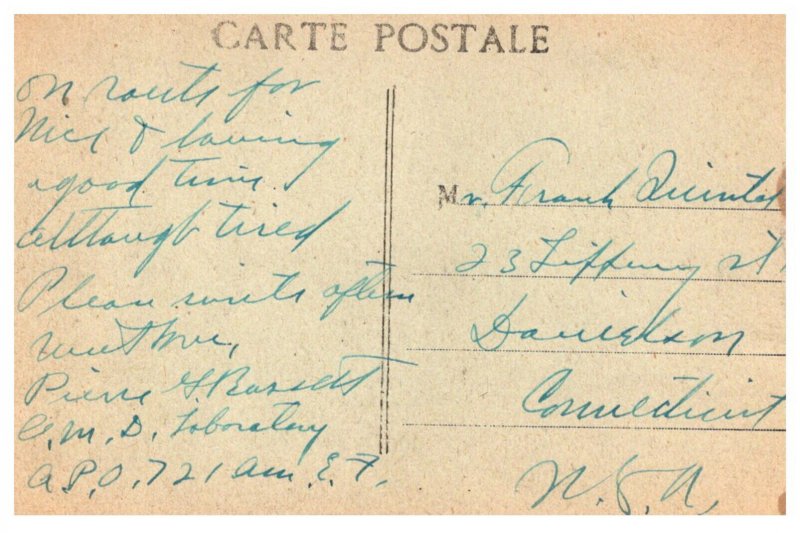 CARTE POSTALE
on route for
Nice & having
a good time
although tired
Please write often
Pierre G. Bassett
C. M. D. Laboratory
A.P.O. 721 Am. E. F.
Mr. Frank
23 Tiffany St
Danielson
Connecticut
U. S. A.